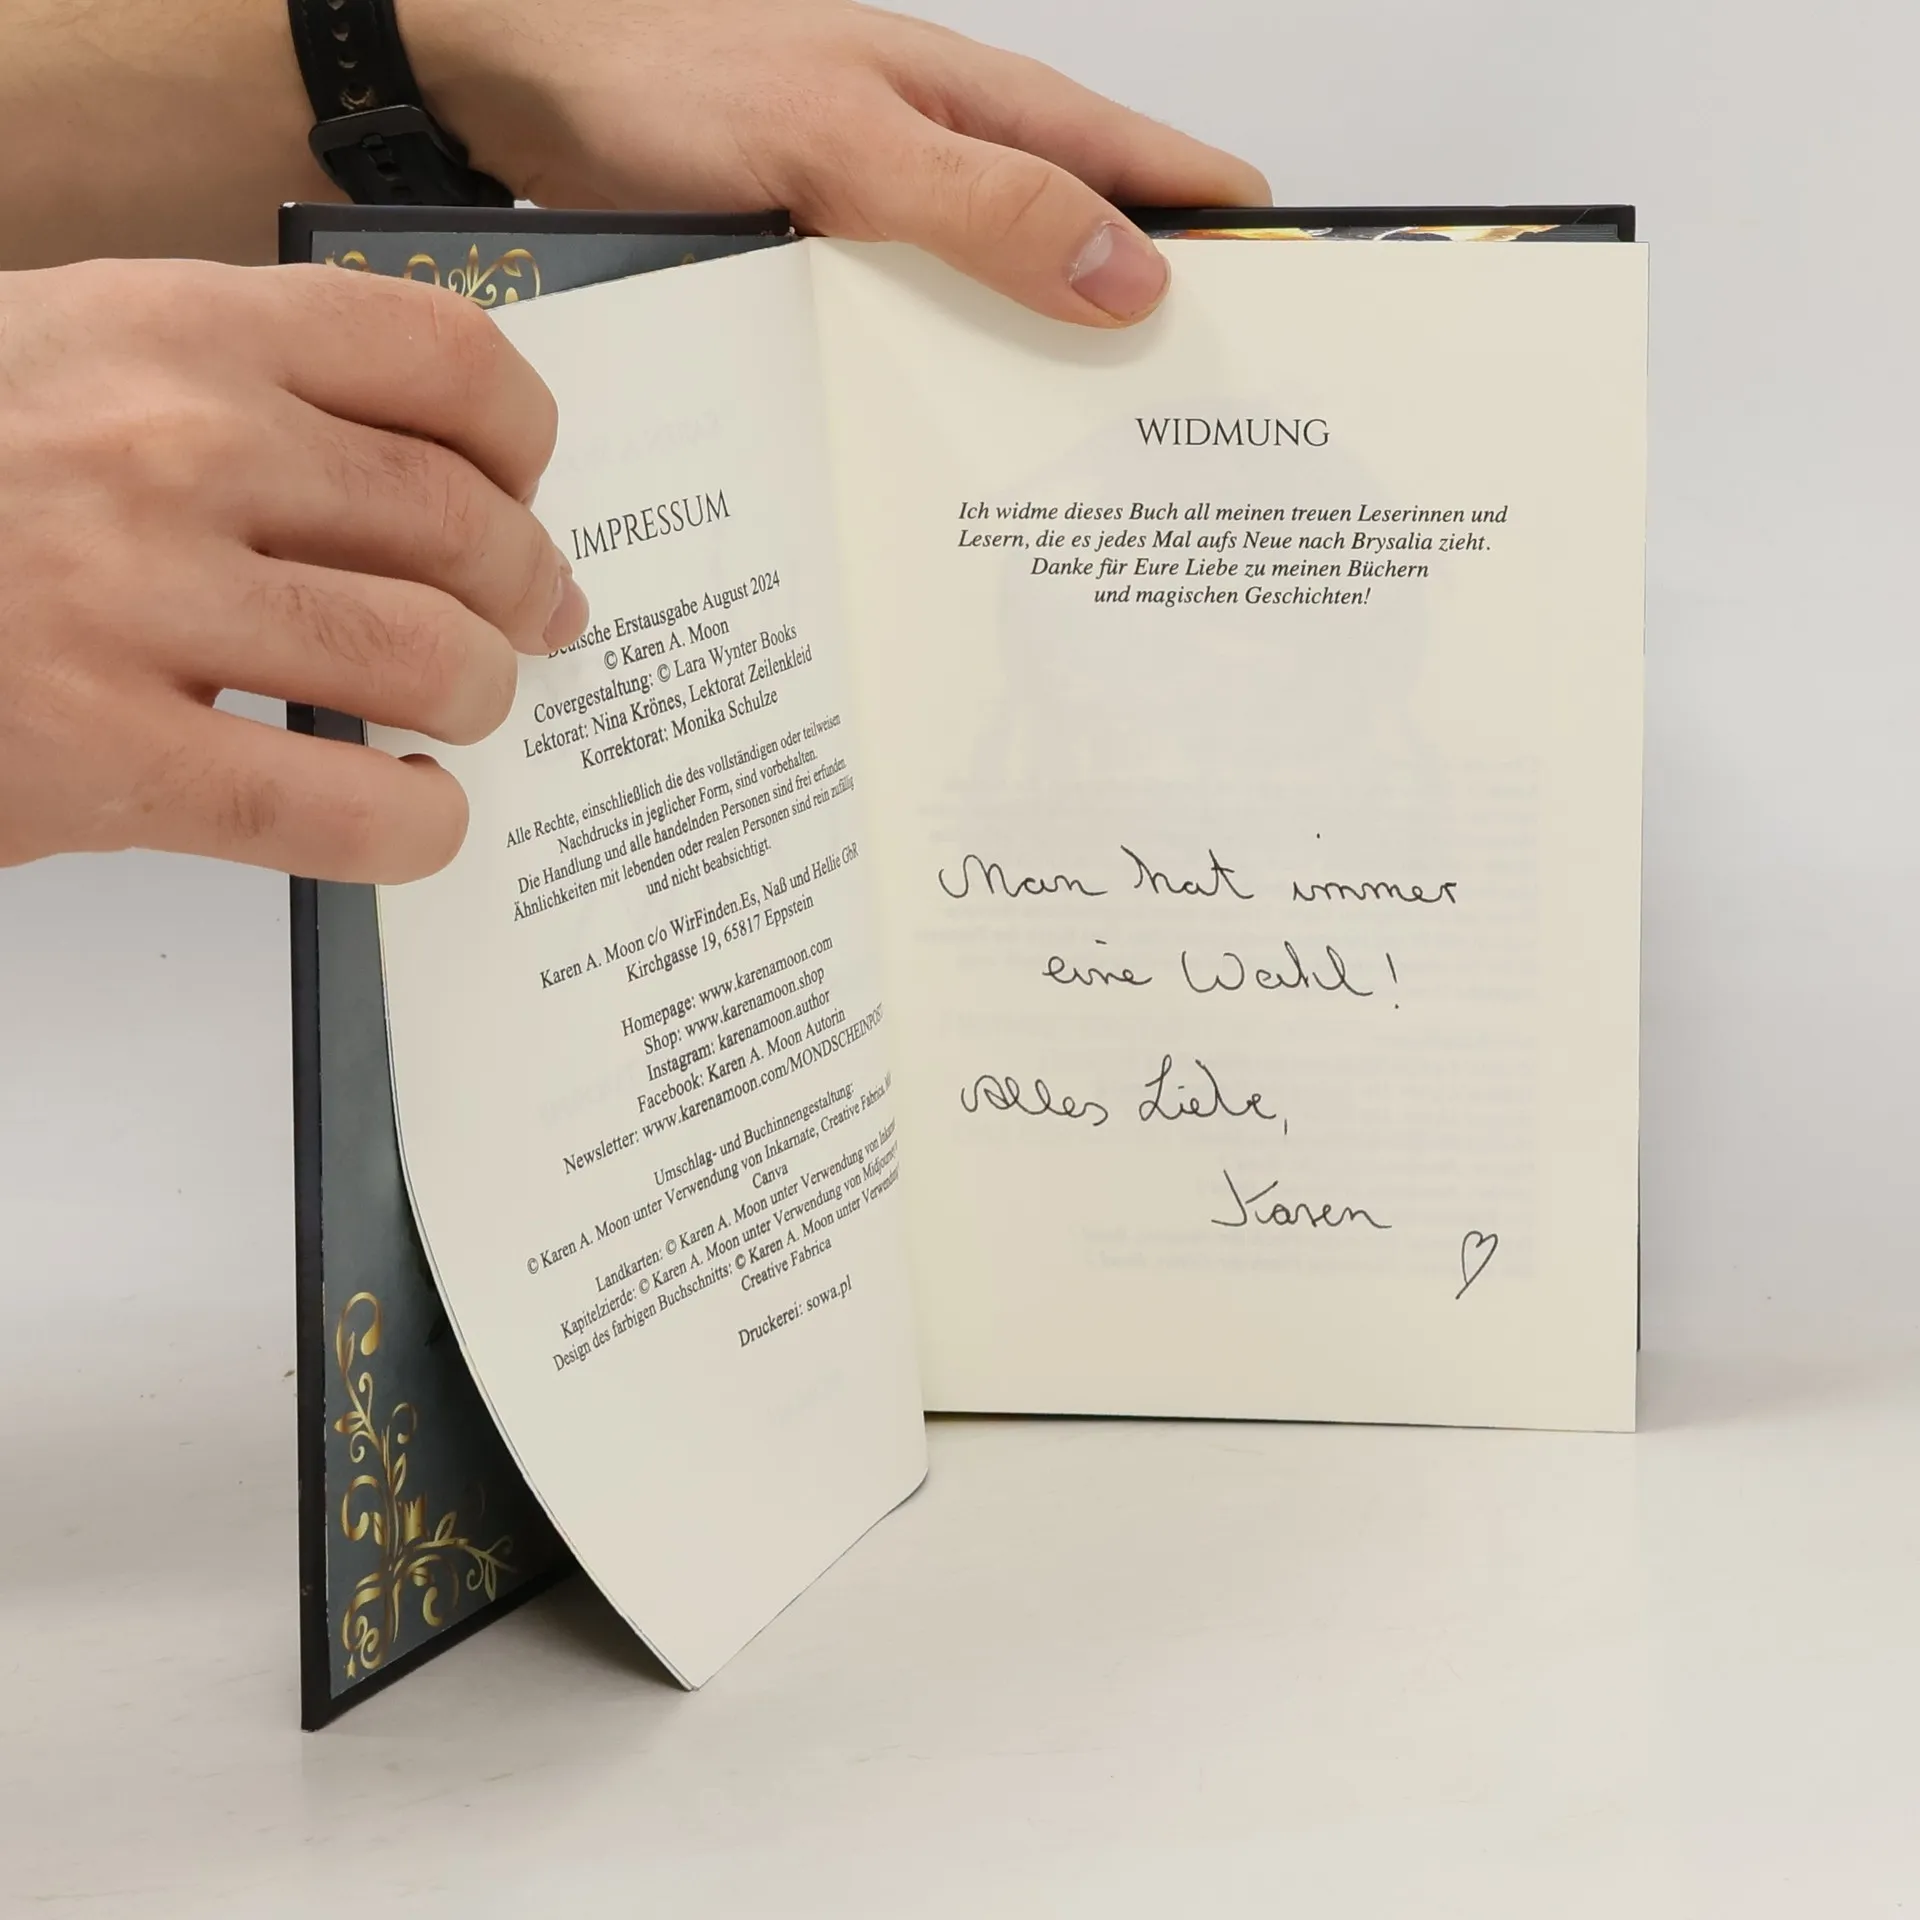 IMPRESSUM
Deutsche Erstausgabe August 2024
© Karen A. Moon
Covergestaltung: © Lara Wynter Books
Lektorat: Nina Krönes, Lektorat Zeilenkleid
Korrektorat: Monika Schulze
Alle Rechte, einschließlich die des vollständigen oder teilweisen
Nachdrucks in jeglicher Form, sind vorbehalten.
Die Handlung und alle handelnden Personen sind frei erfunden.
Ähnlichkeiten mit lebenden oder realen Personen sind rein zufällig
und nicht beabsichtigt.
Karen A. Moon c/o WirFinden.Es, Naß und Hellie GbR
Kirchgasse 19, 65817 Eppstein
Homepage: www.karenamoon.com
Shop: www.karenamoon.shop
Instagram: karenamoon.author
Facebook: Karen A. Moon Autorin
Newsletter: www.karenamoon.com/MONDSCHEINPOST
Umschlag- und Buchinnengestaltung:
© Karen A. Moon unter Verwendung von Inkarnate, Creative Fabrica,
Canva
Landkarten: © Karen A. Moon unter Verwendung von
Kapitelzierde: © Karen A. Moon unter Verwendung von Midjourney
Design des farbigen Buchschnitts: © Karen A. Moon unter Verwendung
Creative Fabrica
Druckerei: sowa.pl
WIDMUNG
Ich widme dieses Buch all meinen treuen Leserinnen und
Lesern, die es jedes Mal aufs Neue nach Brysalia zieht.
Danke für Eure Liebe zu meinen Büchern
und magischen Geschichten!
Man hat immer
eine Wahl!
Alles Liebe,
Karen